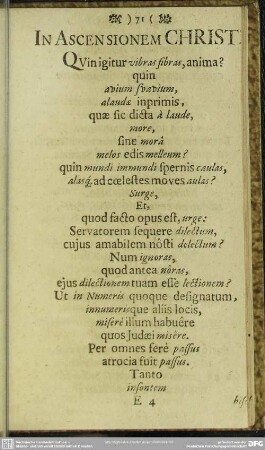 ) 71 (
IN ASCENSIONEM CHRIST
QVin igitur vibras fibras, anima?
quin
avium svavium,
alaudæ inprimis,
quæ sic dicta à laude,
more,
sine morâ
melos edis melleum?
quin mundi immundi spernis caulas,
alasq; ad cœlestes moves aulas?
Surge,
Et,
quod facto opus est, urge:
Servatorem sequere dilectum,
cujus amabilem nôsti delectum?
Num ignoras,
quod antea nôras,
ejus dilectionem tuam esse lectionem?
Ut in Numeris quoque designatum,
innumerisque aliis locis,
miserè illum habuêre
quos Judæi misère.
Per omnes ferè passus
atrocia fuit passus.
Tanto
insontem
E 4